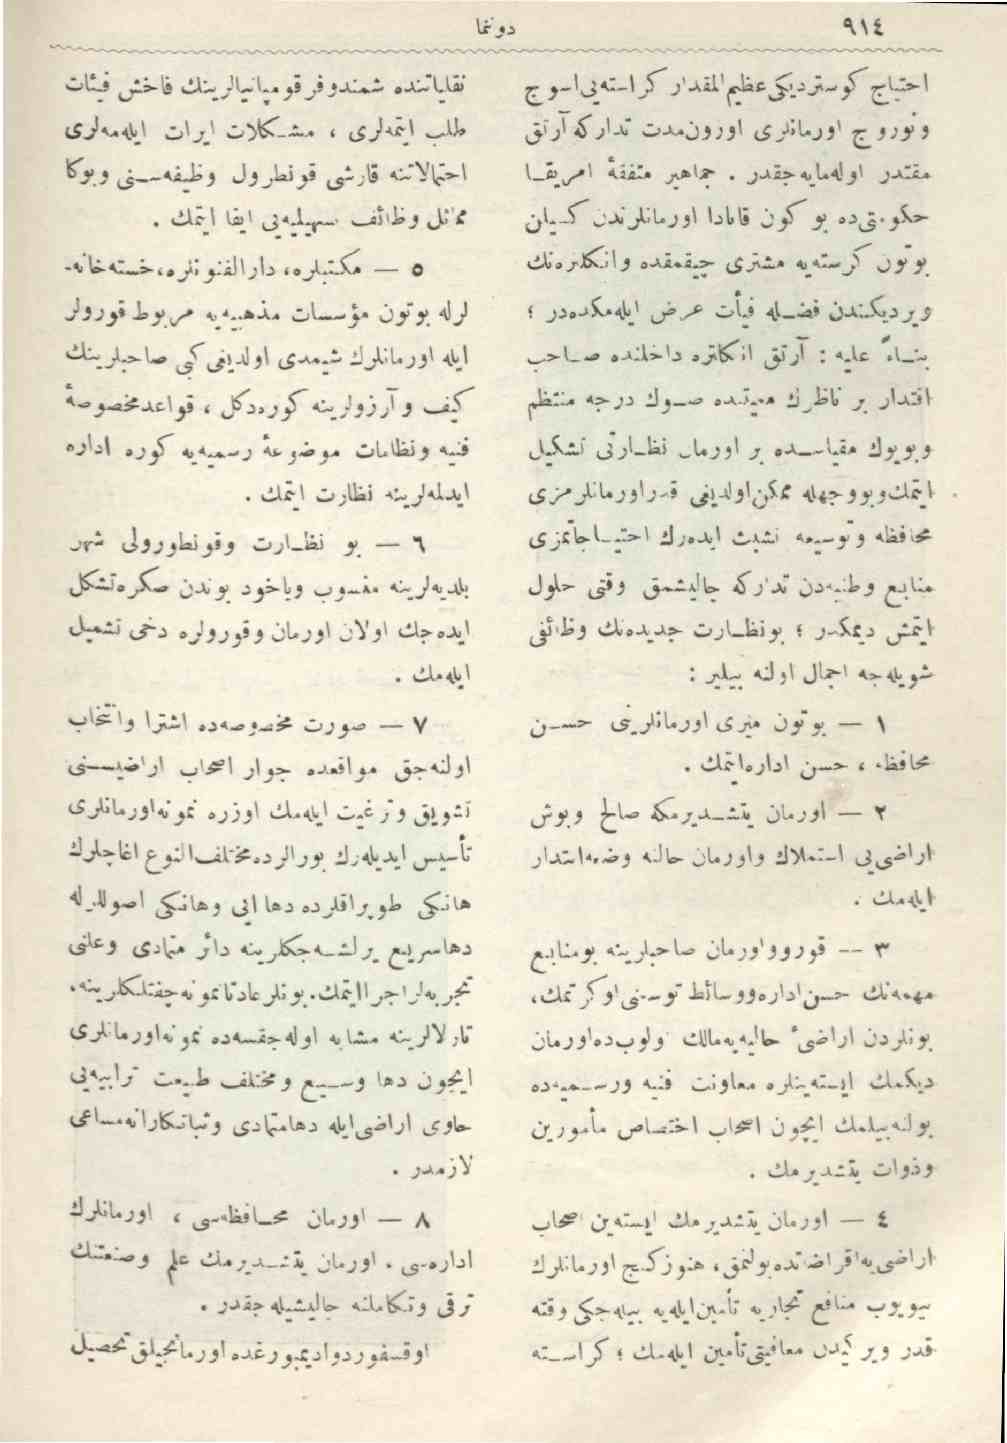 ٩١٤
دوننما
احتياج كوسترديكى عظيم‌المقدار كراسته‌يى‌اسوج
و نوروج اورمانلرى اوزون‌مدت تداركه آرتق
مقتدر اوله‌مايه‌جقدر . جماهير متفقهٔ امريقا
حكومتى‌ده بو كون قانادا اورمانلرندن كسيلن
بوتون كرسته‌يه مشترى چيقمقده وانكلتره‌نك
ويرديكندن فضله فيأت عرض ايله‌مكده‌در ؛
بناءً عليه : آرتق انكلتره داخلنده صاحب
اقتدار بر ناظرك معيتنده صوك درجه منتظم
وبويوك مقياسده بر اورمان نظارتى تشكيل
ايتمك‌وبووجهله ممكن‌اولديغى قدراورمانلرمزى
محافظه وتوسيعه تشبث ايده‌رك احتياجاتمزى
منابع وطنيه‌دن تداركه چاليشمق وقتى حلول
ايتمش ديمكدر ؛ بونظارت جديده‌نك وظائفى
شويله‌جه اجمال اولنه بيلير :
١ — بوتون ميرى اورمانلرينى حسن
محافظه ، حسن اداره‌ايتمك .
٢ — اورمان يتشديرمكه صالح وبوش
اراضى‌يى استملاك واورمان حالنه وضعه‌ابتدار
ايله‌مك .
٣ — قورووا‌ورمان صاحبلرينه بومنابع
مهمه‌نك حسن‌اداره‌ووسائط توسعنى‌اوكرتمك،
بونلردن اراضئ حاليه‌يه‌مالك اولوب‌ده‌اورمان
ديكمك ايسته‌ينلره معاونت فنيه ورسميه‌ده
بولنه‌بيلمك ايچون اصحاب اختصاص مأمورين
وذوات يتشديرمك .
٤ — اورمان يتشديرمك ايسته‌ين اصحاب
اراضى‌يه‌اقراضاتده‌بولنمق، هنوزكنج اورمانلرك
بيويوب منافع تجاريه تأمين‌ايله‌يه بيله‌جكى وقته
قدر ويركيدن معافيتى‌تأمين ايله‌مك ؛ كراسته
نقلياتنده شمندوفرقومپانيالرينك فاخش فيئات
طلب ايتمه‌لرى ، مشكلات ايراث ايله‌مه‌لرى
احتمالاتنه قارشى قونطرول وظيفه‌سنى وبوكا
مماثل وظائف تسهيليه‌يى ايفا ايتمك .
٥ — مكتبلره، دارالفنونلره،خسته‌خانه‌-
لرله بوتون مؤسسات مذهبيه‌يه مربوط قورولر
ايله اورمانلرك شيمدى اولديغى كبى صاحبلرينك
كيف و آرزولرينه كوره‌دكل ، قواعدمخصوصهٔ
فنيه ونظامات موضوعهٔ رسميه‌يه كوره اداره
ايدلمه‌لرينه نظارت ايتمك .
٦ — بو نظارت وقونطورولى شهر
بلديه‌لرينه منسوب وياخود بوندن صكره‌تشكل
ايده‌جك اولان اورمان وقورولره دخى تشميل
ايله‌مك .
٧ — صورت مخصوصه‌ده اشترا وانتخاب
اولنه‌جق مواقعده جوار اصحاب اراضيسنى
تشويق وترغيت ايله‌مك اوزره نمونه‌اورمانلرى
تأسيس ايديله‌رك بورالرده‌مختلف‌النوع اغاجلرك
هانكى طوپراقلرده دها ايى وهانكى اصوللرله
دهاسريع يرلشه‌جكلرينه دائر متمادى وعلنى
تجربه‌لراجراايتمك. بونلرعادتانمونه‌چفتلكلرينه،
تارلالرينه مشابه اوله‌جقسه‌ده نمونه‌اورمانلرى
ايچون دها وسيع ومختلف طبيعت ترابيه‌يى
حاوى اراضى‌ايله دهامتمادى وثباتكارانه‌مساعى
لازمدر .
٨ — اورمان محافظه‌سى ، اورمانلرك
اداره‌سى . اورمان يتشديرمك علم وصنعتنك
ترقى وتكاملنه چاليشيله‌جقدر .
اوقسفوردواديمبورغده اورمانجيلق تحصيل